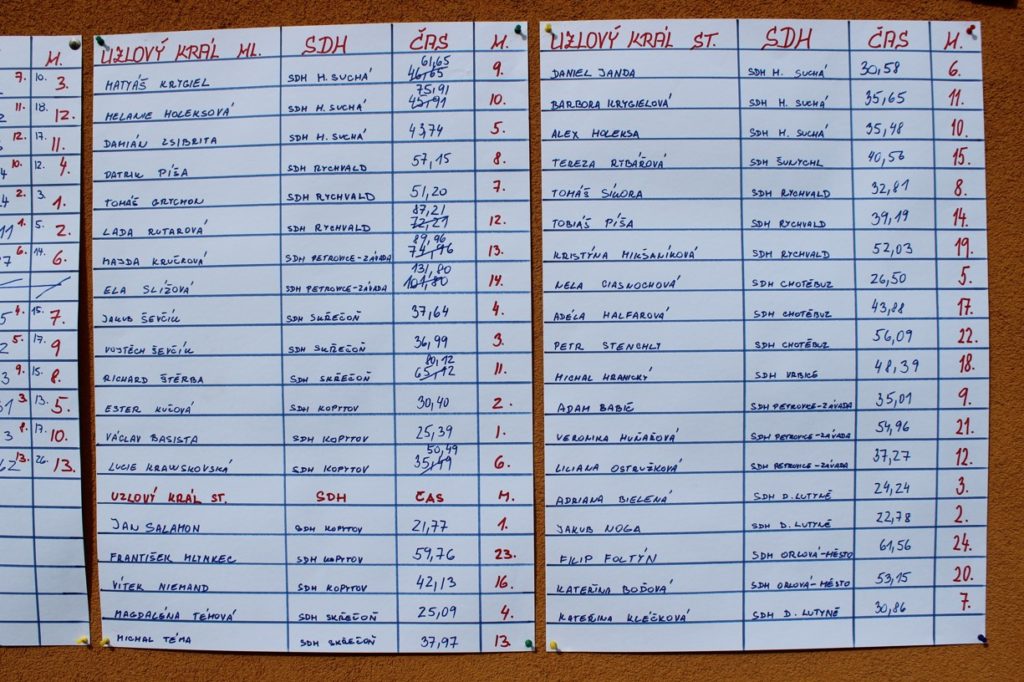 M.
7. 10. 3.
11. 18. 12.
12. 17. 11.
10. 12. 4.
2. 3. 1.
1. 5. 2.
6. 14. 6.
4. 15. 7.
5. 17. 9
9. 15. 8.
3 13. 5.
8. 17. 10.
13. 26. 13.
UZLOVÝ KRÁL ML. SDH ČAS M.
MATYÁŠ KRYGIEL SDH H. SUCHÁ 61,65 46,65 9.
MELANIE HOLEKSOVÁ SDH H. SUCHÁ 75,91 45,91 10.
DAMIÁN ZSIBRITA SDH H. SUCHÁ 43,74 5.
PATRIK PÍŠA SDH RYCHVALD 57,15 8.
TOMÁŠ GRYCHON SDH RYCHVALD 51,20 7.
LADA RUTAROVÁ SDH RYCHVALD 87,21 72,21 12.
MAJDA KRUČKOVÁ SDH PETROVICE-ZÁVADA 89,96 74,96 13.
ELA SLÍŽOVÁ SDH PETROVICE-ZÁVADA 131,80 101,80 14.
JAKUB ŠEVČÍK SDH SKŘEČOŇ 37,64 4.
VOJTĚCH ŠEVČÍK SDH SKŘEČOŇ 36,99 3.
RICHARD ŠTĚRBA SDH SKŘEČOŇ 80,12 65,12 11.
ESTER KUŠOVÁ SDH KOPYTOV 30,40 2.
VÁCLAV BASISTA SDH KOPYTOV 25,39 1.
LUCIE KRAWSKOVSKÁ SDH KOPYTOV 50,49 35,49 6.
UZLOVÝ KRÁL ST. SDH ČAS M.
JAN SALAMON SDH KOPYTOV 21,77 1.
FRANTIŠEK MLYNKEC SDH KOPYTOV 59,76 23.
VÍTEK NIEMAND SDH KOPYTOV 42,13 16.
MAGDALÉNA TÉMOVÁ SDH SKŘEČOŇ 25,09 4.
MICHAL TÉMA SDH SKŘEČOŇ 37,97 13.
UZLOVÝ KRÁL ST. SDH ČAS M.
DANIEL JANDA SDH H. SUCHÁ 30,58 6.
BARBORA KRYGIELOVÁ SDH H. SUCHÁ 35,65 11.
ALEX HOLEKSA SDH H. SUCHÁ 35,48 10.
TEREZA RYBÁŘOVÁ SDH ŠUNYCHL 40,56 15.
TOMÁŠ SÍKORA SDH RYCHVALD 32,81 8.
TOBIÁŠ PÍŠA SDH RYCHVALD 39,19 14.
KRISTÝNA MIKŠANÍKOVÁ SDH RYCHVALD 52,03 19.
NELA CIASNOCHOVÁ SDH CHOTĚBUZ 26,50 5.
ADÉLA HALFAROVÁ SDH CHOTĚBUZ 43,88 17.
PETR STENCHLY SDH CHOTĚBUZ 56,09 22.
MICHAL HRANICKÝ SDH VRBICE 48,39 18.
ADAM BABIČ SDH PETROVICE-ZÁVADA 35,01 9.
VERONIKA HUŇAŘOVÁ SDH PETROVICE-ZÁVADA 54,96 21.
LILIANA OSTRUŽKOVÁ SDH PETROVICE-ZÁVADA 37,27 12.
ADRIANA BIELENÁ SDH D. LUTYNĚ 24,24 3.
JAKUB NOGA SDH D. LUTYNĚ 22,78 2.
FILIP FOLTÝN SDH ORLOVÁ-MĚSTO 61,56 24.
KATEŘINA BODOVÁ SDH ORLOVÁ-MĚSTO 53,15 20.
KATEŘINA KLEČKOVÁ SDH D. LUTYNĚ 30,86 7.